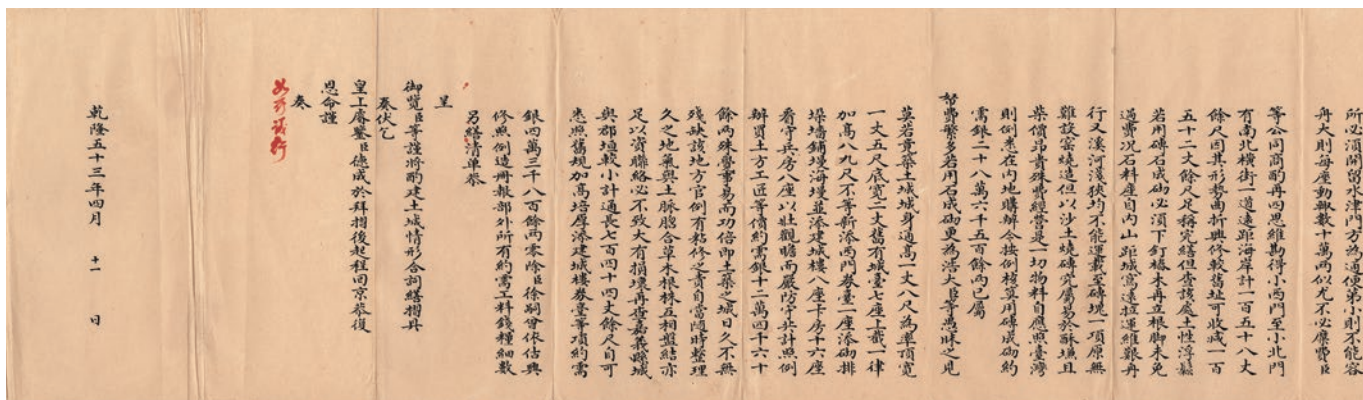 所必須開留水津門方為通便第小則不能容
舟大則每座動輒數十萬兩似尤不必糜費臣
等公同商酌再四思維勘得小西門至小北門
有南北橫街一道遠距海岸計一百五十八丈
餘尺因其形勢曲折興修較舊址可收減一百
五十二丈餘尺足稱完繕但查該處土性浮鬆
若用磚石成砌必須下釘樁木再立根腳未免
過費況石料產自內山距城窵遠拉運維艱再
行又溪河淺狹均不能運載至磚塊一項原無
難設窯燒造但以沙土燒磚究屬易於酥𪉸且
柴價昂貴殊費經營是一切物料自應照臺灣
則例悉在內地購辦令按例核算用磚成砌約
需銀二十八萬六千五百餘兩已屬
帑費繁多若用石成砌更為浩大臣等愚昧之見
莫若竟築土城城身通高一丈八尺為準頂寬
一丈五尺底寬二丈舊有城臺七座上截一律
加高八九尺不等新添西門券臺一座添砌排
垛墻鋪墁海墁並添建城樓八座卡房十六座
看守兵房八座以壯觀瞻而嚴防守共計照例
辦買土方工匠等價約需銀十二萬四千六十
餘兩殊覺事易而功倍即土築之城日久不無
殘缺該地方官例有粘修之責自當隨時整理
久之地氣與土脈膠合草木根株互相盤結亦
足以資聯絡必不致大有損壞再查嘉義縣城
與郡垣較小計通長七百四十四丈餘尺自可
悉照舊規加高培厚添建城樓券臺等項約需
銀四萬三千八百餘兩零除臣徐嗣曾依估興
修照例造冊報部外所有約需工料錢糧細數
另繕清單恭
呈
御覽臣等謹將酌建土城情形合詞繕摺具
奏伏乞
皇上睿鑒臣德成於拜摺後起程回京恭復
恩命謹
奏
如所議行
乾隆五十三年四月 十一 日